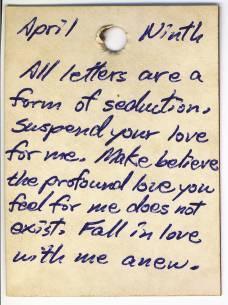 April Ninth
All letters are a
form of seduction.
Suspend your love
for me. Make believe
the profound love you
feel for me does not
exist. Fall in love
with me anew.